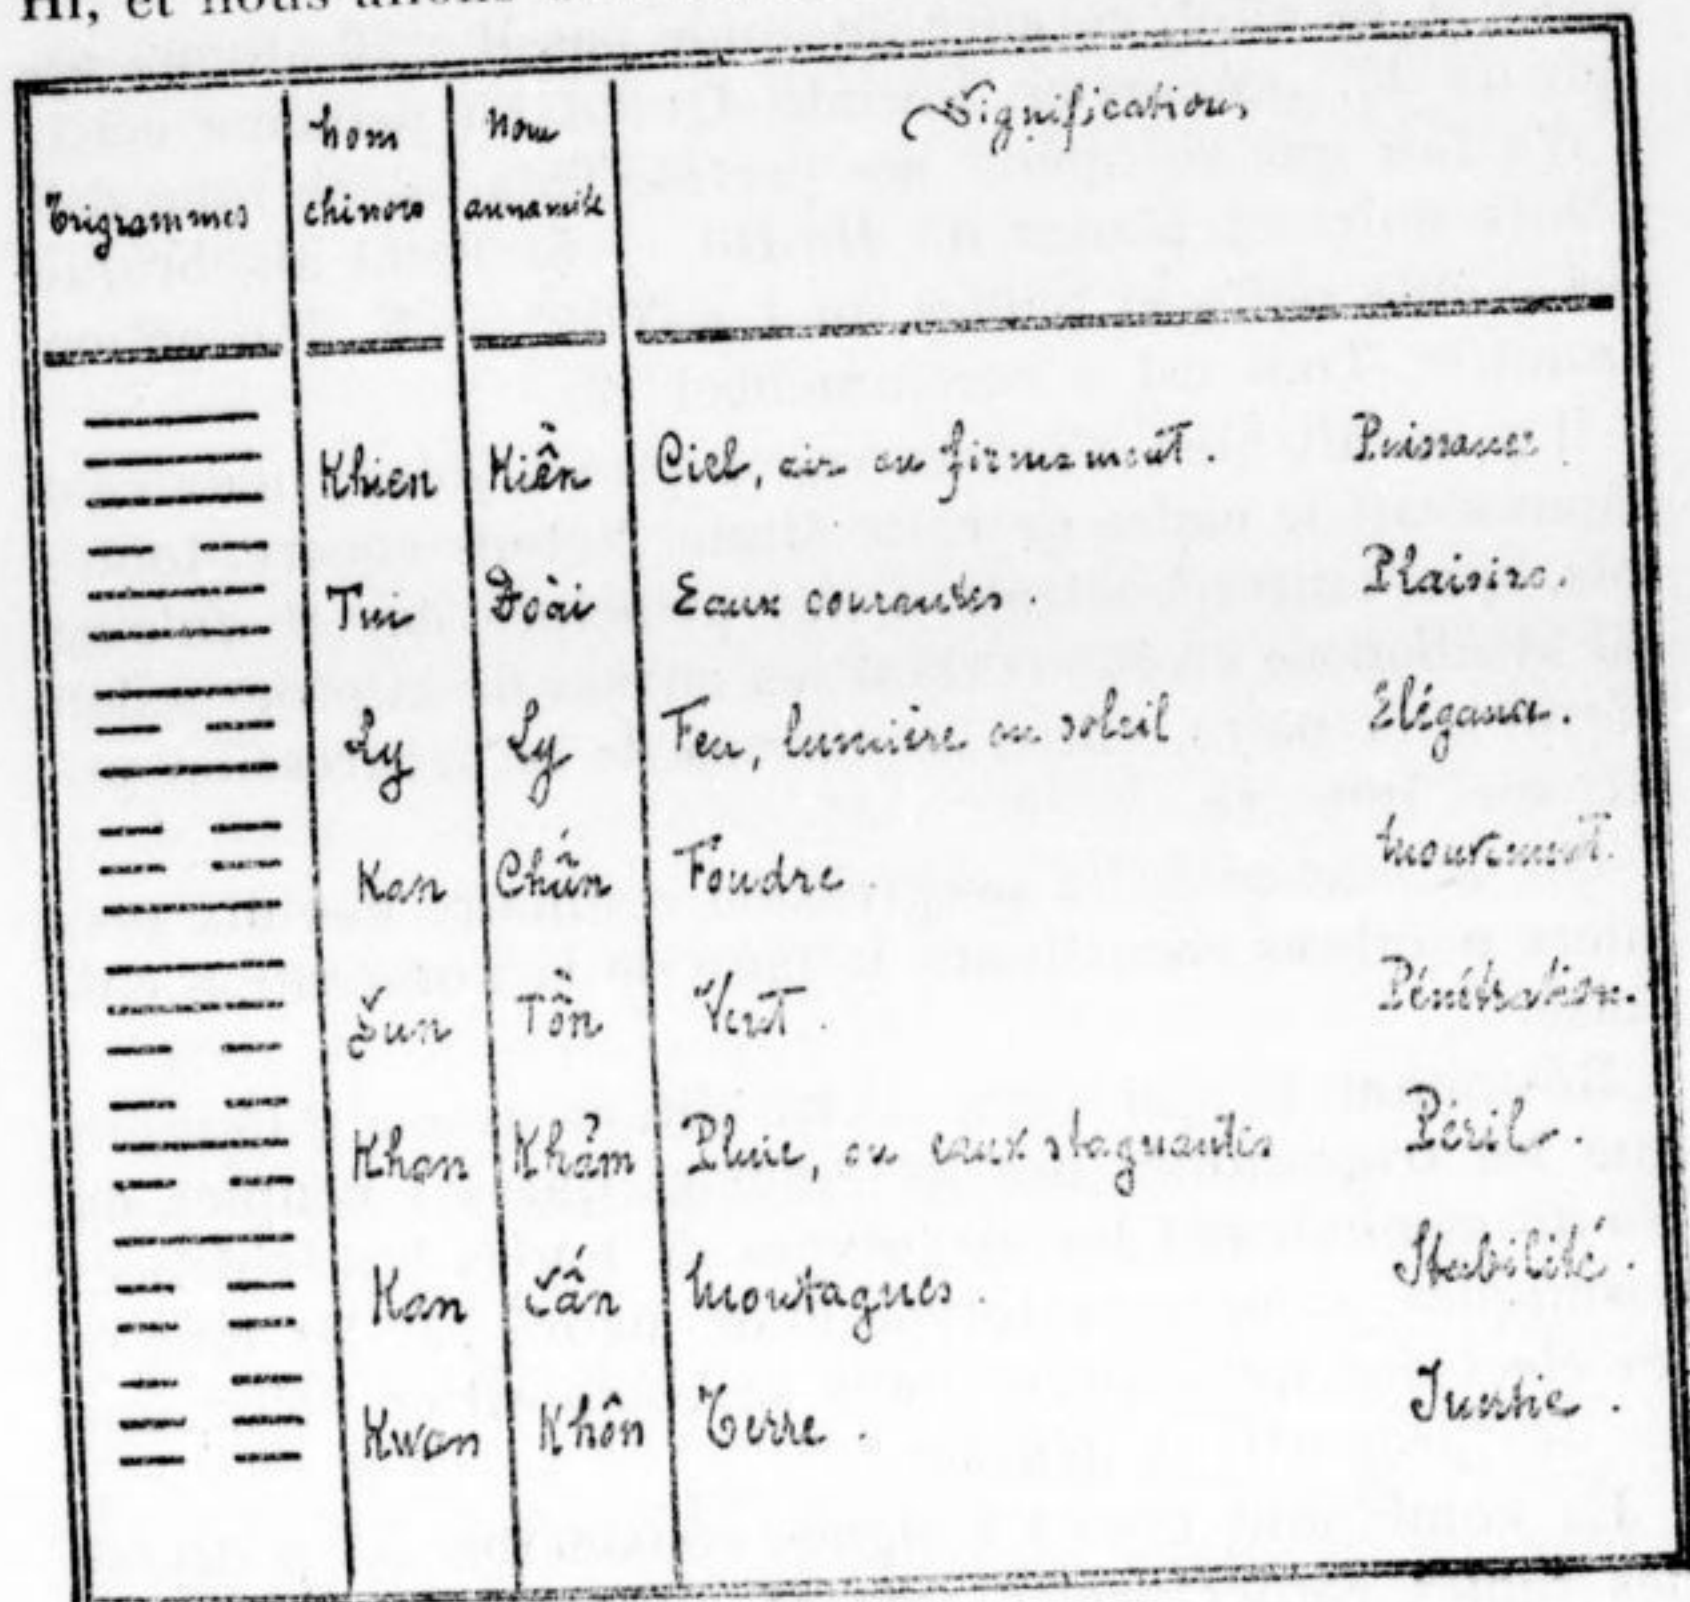 Hi, et nous allons
Trigrammes
nom chinois
nom annamite
Significations
☰ Khien Kiên Ciel, air ou firmament. Puissance
☱ Tui Đoài Eaux courantes. Plaisirs.
☲ Ly Ly Feu, lumière ou soleil Elégance.
☳ Kan Foudre. Mouvement.
☴ Sun Tôn Vent. Pénétration.
☵ Khan Khảm Pluie, ou eaux stagnantes Péril.
☶ Kan Cấn Montagnes. Stabilité.
☷ Kwan Khôn Terre. Inertie.